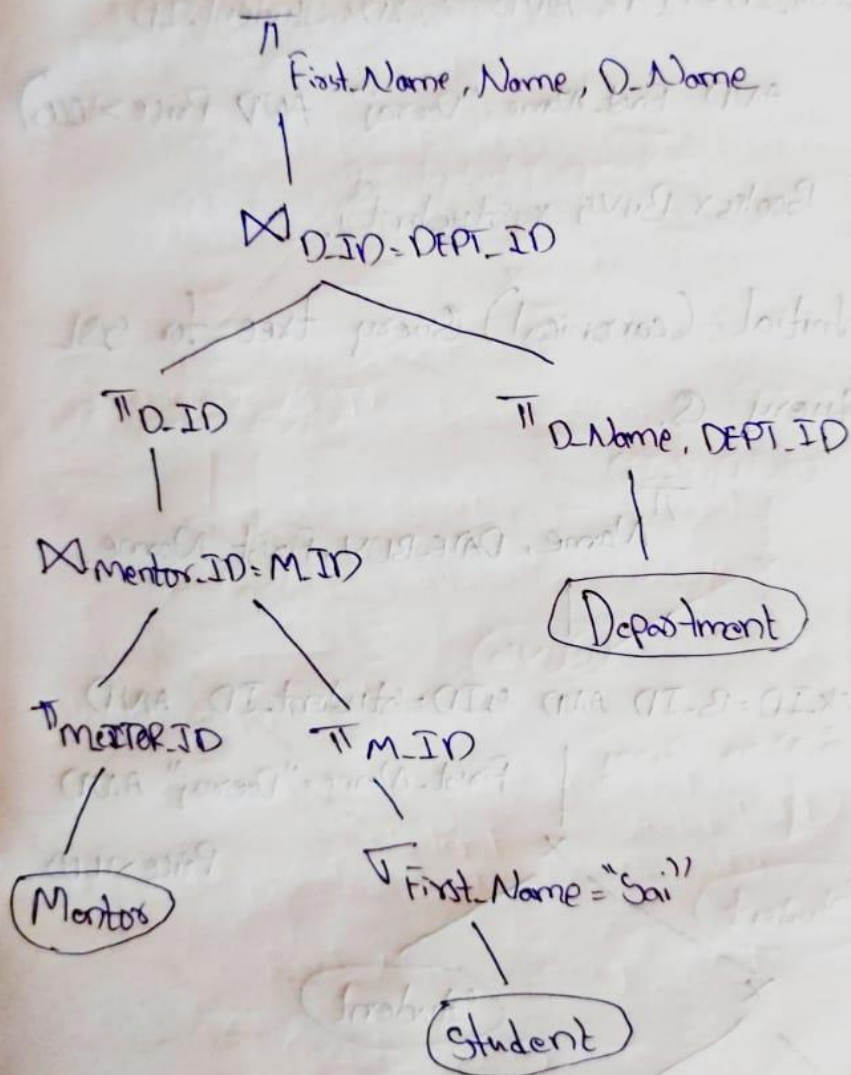 π First_Name, Name, D_Name
⋈ D_ID=DEPT_ID
π D_ID
π D_Name, DEPT_ID
⋈ Mentor_ID=M_ID
Department
π MENTOR_ID
π M_ID
Mentor
σ First_Name="Sai"
Student